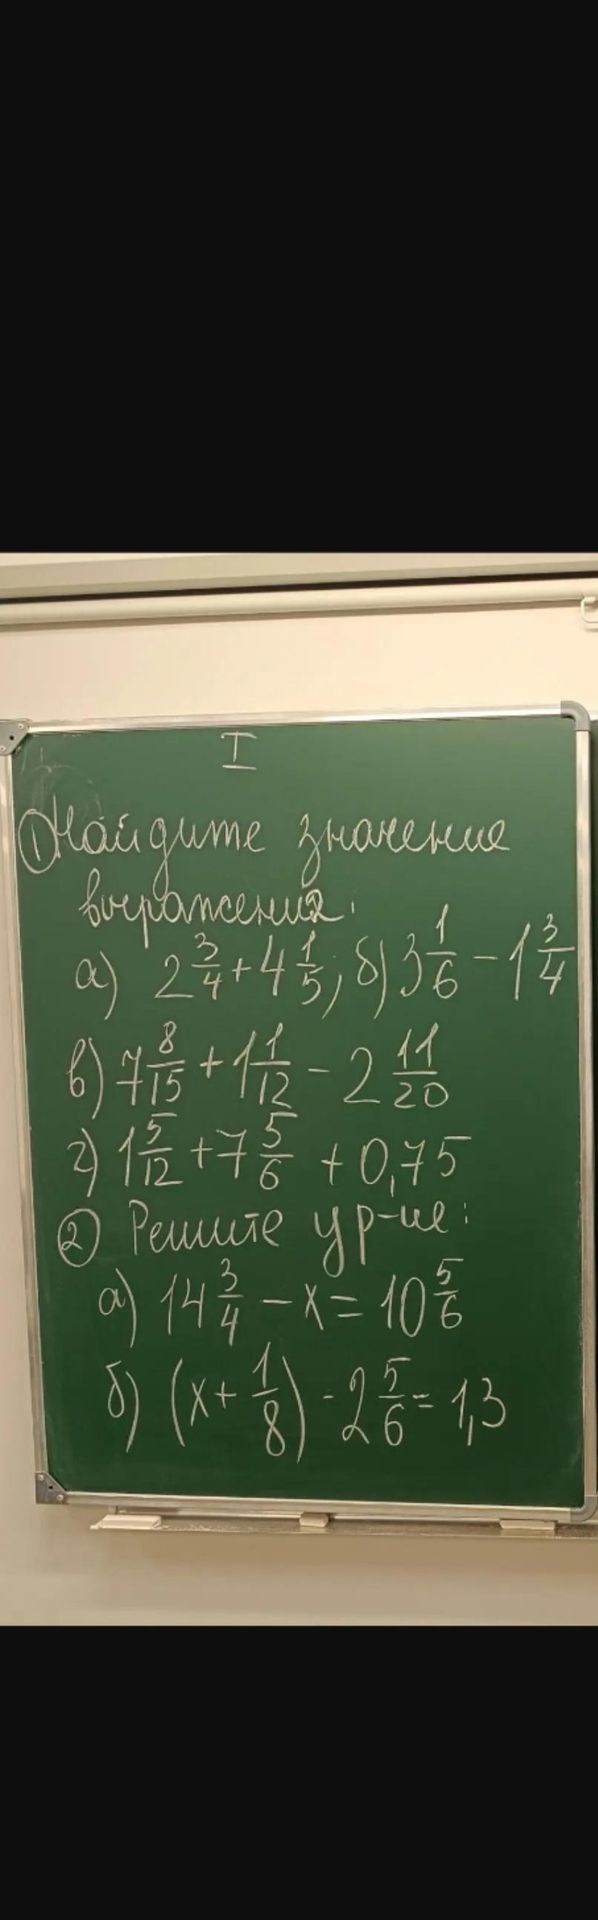 I
① Найдите значение
выражения:
а) 2 3/4 + 4 1/5; б) 3 1/6 - 1 3/4
в) 7 8/15 + 1 1/12 - 2 11/20
г) 1 5/12 + 7 5/6 + 0,75
② Решите ур-ие:
а) 14 3/4 - x = 10 5/6
б) (x + 1/8) - 2 5/6 = 1,3